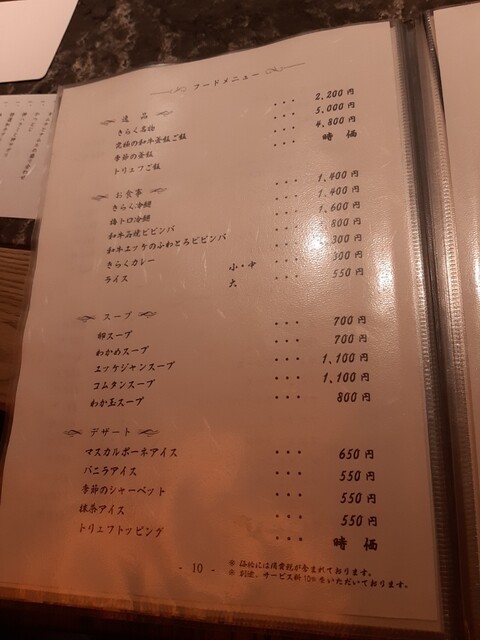 フードメニュー
逸品
きらく名物 ・・・ 2,200円
究極の和牛釜飯ご飯 ・・・ 5,000円
季節の釜飯 ・・・ 4,800円
トリュフご飯 ・・・ 時価
お食事
きらく冷麺 ・・・ 1,400円
梅トロ冷麺 ・・・ 1,400円
和牛石焼ビビンバ ・・・ 1,600円
和牛ユッケのふわとろビビンバ ・・・ 800円
きらくカレー ・・・ 300円
ライス 小・中 ・・・ 300円
大 ・・・ 550円
スープ
卵スープ ・・・ 700円
わかめスープ ・・・ 700円
ユッケジャンスープ ・・・ 1,100円
コムタンスープ ・・・ 1,100円
わか玉スープ ・・・ 800円
デザート
マスカルポーネアイス ・・・ 650円
バニラアイス ・・・ 550円
季節のシャーベット ・・・ 550円
抹茶アイス ・・・ 550円
トリュフトッピング ・・・ 時価
- 10 -
※ 価格には消費税が含まれております。
※ 別途、サービス料10%をいただいております。